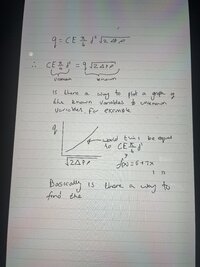 q = C E π/4 d² √2 ΔP ρ
∴ C E π/4 d² = q √2 ΔP ρ
unknown known
Is there a way to plot a graph of
the known variables & unknown
variables. For example
q
would this be equal
to C E π/4 d²
√2 ΔP ρ
f(x) = 5 + 7x
Basically is there a way to
find the